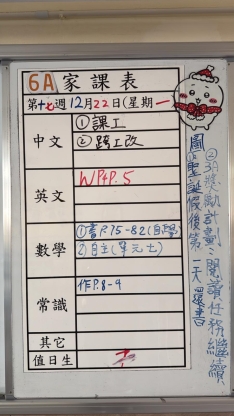 6A 家課表
第十七週 12月22日(星期一)
中文
①課工
②路工改
英文
WP4 P.5
數學
①書P.75-82(自學)
②自主(單元七)
常識
作P.8-9
其它
值日生
7
②3A獎勵計劃:閱讀任務繼續
圖:聖誕假後第一天還書